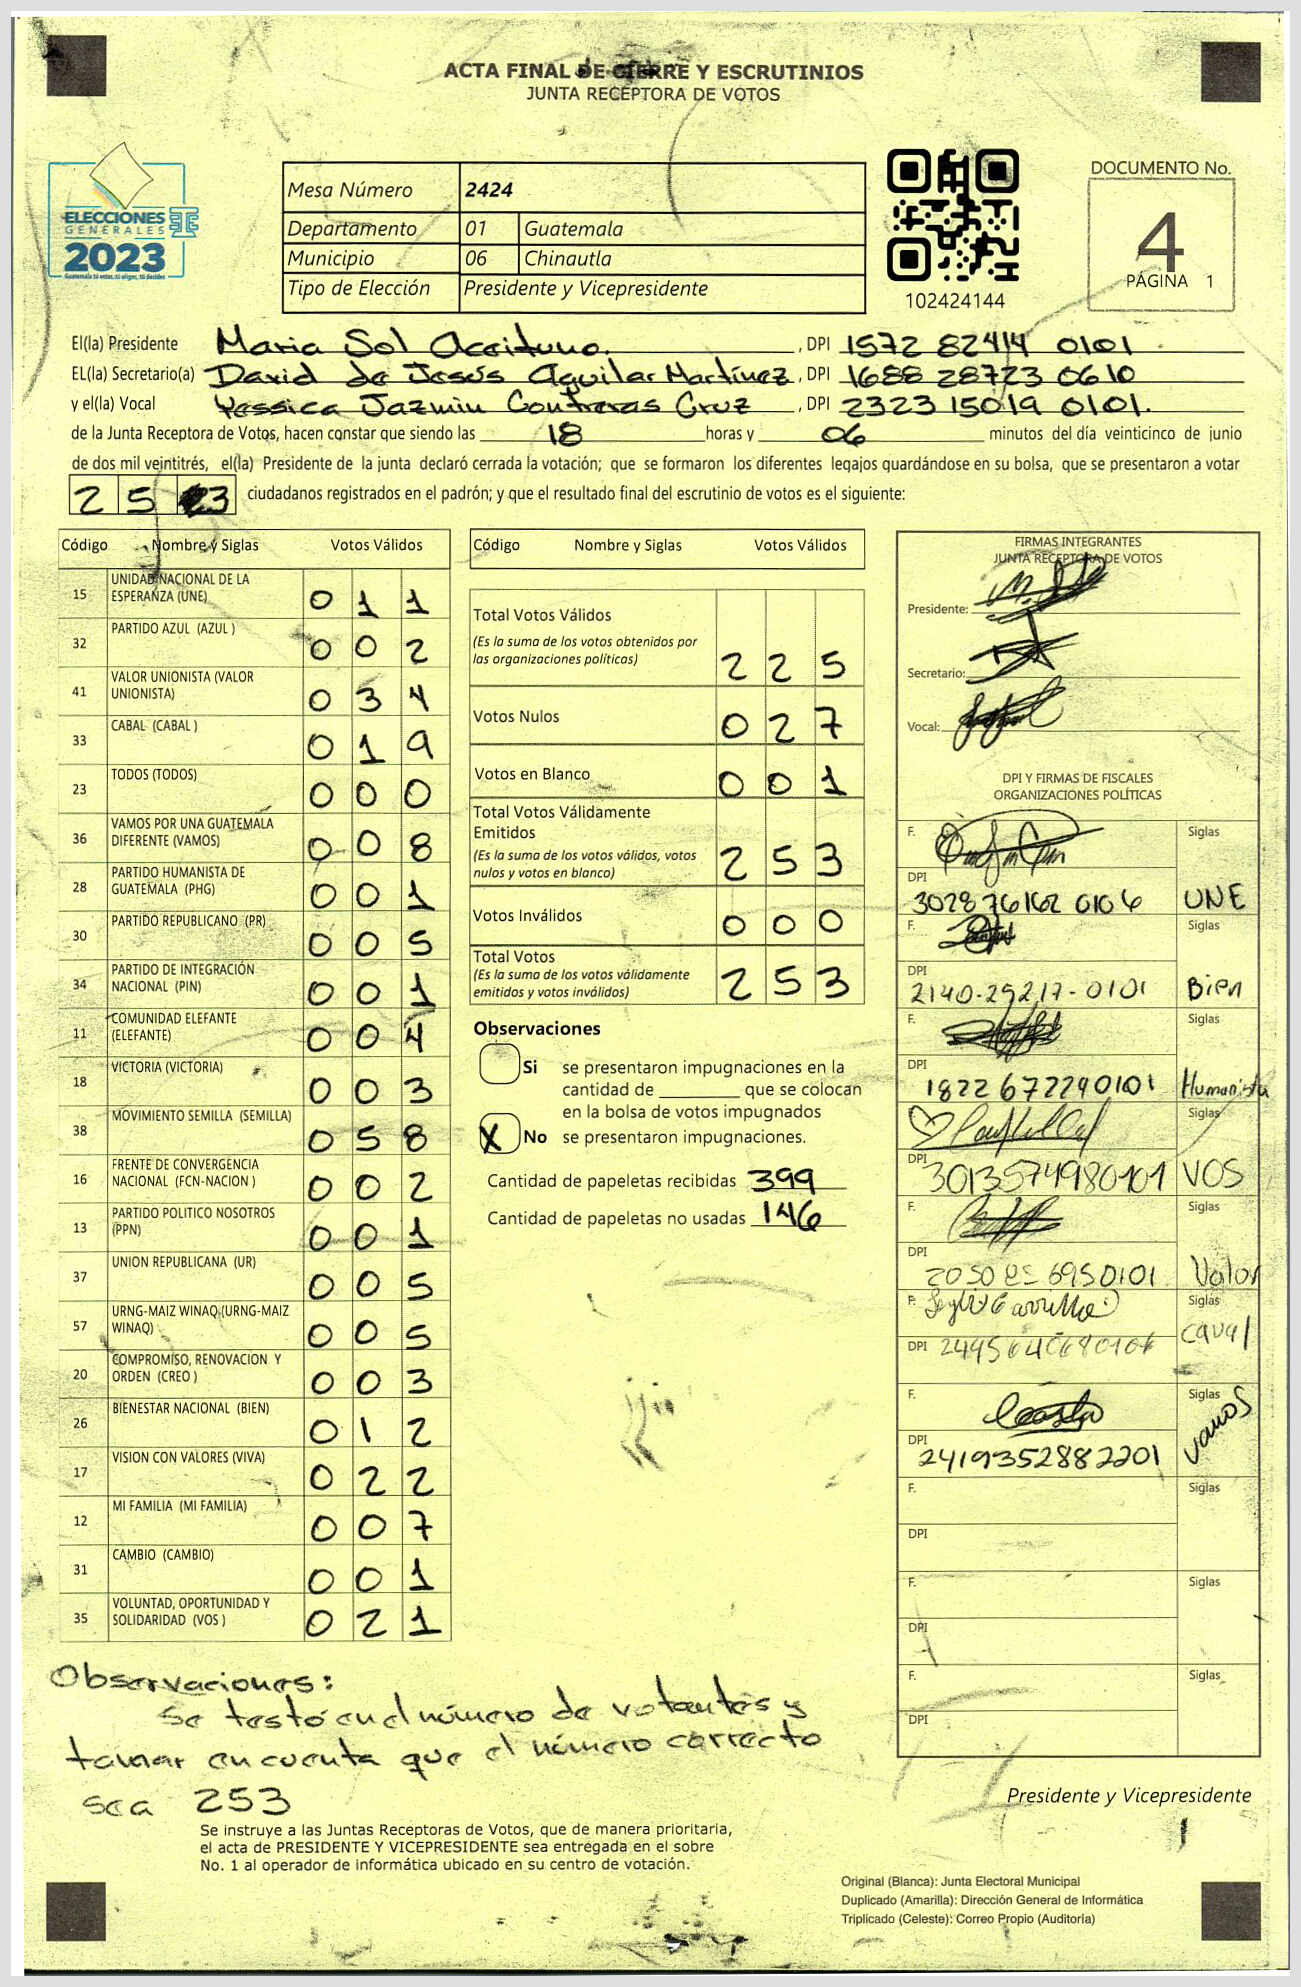 ACTA FINAL DE CIERRE Y ESCRUTINIOS
JUNTA RECEPTORA DE VOTOS
ELECCIONES
GENERALES
2023
Guatemala tú votas, tú eliges, tú decides
Mesa Número 2424
Departamento 01 Guatemala
Municipio 06 Chinautla
Tipo de Elección Presidente y Vicepresidente
102424144
DOCUMENTO No.
4
PÁGINA 1
El(la) Presidente Maria Sol , DPI 1572 82414 0101
EL(la) Secretario(a) David de Jesús Aguilar Martínez , DPI 1688 28723 0610
y el(la) Vocal Yessica Jazmin Contreras Cruz , DPI 2323 15019 0101.
de la Junta Receptora de Votos, hacen constar que siendo las 18 horas y 06 minutos del día veinticinco de junio
de dos mil veintitrés, el(la) Presidente de la junta declaró cerrada la votación; que se formaron los diferentes legajos guardándose en su bolsa, que se presentaron a votar
2 5 3 ciudadanos registrados en el padrón; y que el resultado final del escrutinio de votos es el siguiente:
Código Nombre y Siglas Votos Válidos
15 UNIDAD NACIONAL DE LA ESPERANZA (UNE) 0 1 1
32 PARTIDO AZUL (AZUL ) 0 0 2
41 VALOR UNIONISTA (VALOR UNIONISTA) 0 3 4
33 CABAL (CABAL ) 0 1 9
23 TODOS (TODOS) 0 0 0
36 VAMOS POR UNA GUATEMALA DIFERENTE (VAMOS) 0 0 8
28 PARTIDO HUMANISTA DE GUATEMALA (PHG) 0 0 1
30 PARTIDO REPUBLICANO (PR) 0 0 5
34 PARTIDO DE INTEGRACIÓN NACIONAL (PIN) 0 0 1
11 COMUNIDAD ELEFANTE (ELEFANTE) 0 0 4
18 VICTORIA (VICTORIA) 0 0 3
38 MOVIMIENTO SEMILLA (SEMILLA) 0 5 8
16 FRENTE DE CONVERGENCIA NACIONAL (FCN-NACION ) 0 0 2
13 PARTIDO POLITICO NOSOTROS (PPN) 0 0 1
37 UNION REPUBLICANA (UR) 0 0 5
57 URNG-MAIZ WINAQ (URNG-MAIZ WINAQ) 0 0 5
20 COMPROMISO, RENOVACION Y ORDEN (CREO ) 0 0 3
26 BIENESTAR NACIONAL (BIEN) 0 1 2
17 VISION CON VALORES (VIVA) 0 2 2
12 MI FAMILIA (MI FAMILIA) 0 0 7
31 CAMBIO (CAMBIO) 0 0 1
35 VOLUNTAD, OPORTUNIDAD Y SOLIDARIDAD (VOS ) 0 2 1
Código Nombre y Siglas Votos Válidos
Total Votos Válidos
(Es la suma de los votos obtenidos por
las organizaciones políticas) 2 2 5
Votos Nulos 0 2 7
Votos en Blanco 0 0 1
Total Votos Válidamente
Emitidos
(Es la suma de los votos válidos, votos
nulos y votos en blanco) 2 5 3
Votos Inválidos 0 0 0
Total Votos
(Es la suma de los votos válidamente
emitidos y votos inválidos) 2 5 3
Observaciones
Si se presentaron impugnaciones en la
cantidad de ________ que se colocan
en la bolsa de votos impugnados
X No se presentaron impugnaciones.
Cantidad de papeletas recibidas 399
Cantidad de papeletas no usadas 146
FIRMAS INTEGRANTES
JUNTA RECEPTORA DE VOTOS
Presidente:
Secretario:
Vocal:
DPI Y FIRMAS DE FISCALES
ORGANIZACIONES POLÍTICAS
F. Siglas
DPI 3028 76162 0106 UNE
F. Siglas
DPI 2140-29217-0101 Bien
F. Siglas
DPI 1822 67229 0101 Humanista
F. Siglas
DPI 3013574980101 VOS
F. Siglas
DPI 6950101 Valor
F. Siglas
DPI caval
F. Siglas
DPI 2419352882201 vamos
F. Siglas
DPI
F. Siglas
DPI
F. Siglas
DPI
Observaciones:
Se testó en el número de votantes y
tomar en cuenta que el número correcto
sea 253
Presidente y Vicepresidente
1
Se instruye a las Juntas Receptoras de Votos, que de manera prioritaria,
el acta de PRESIDENTE Y VICEPRESIDENTE sea entregada en el sobre
No. 1 al operador de informática ubicado en su centro de votación.
Original (Blanca): Junta Electoral Municipal
Duplicado (Amarilla): Dirección General de Informática
Triplicado (Celeste): Correo Propio (Auditoría)